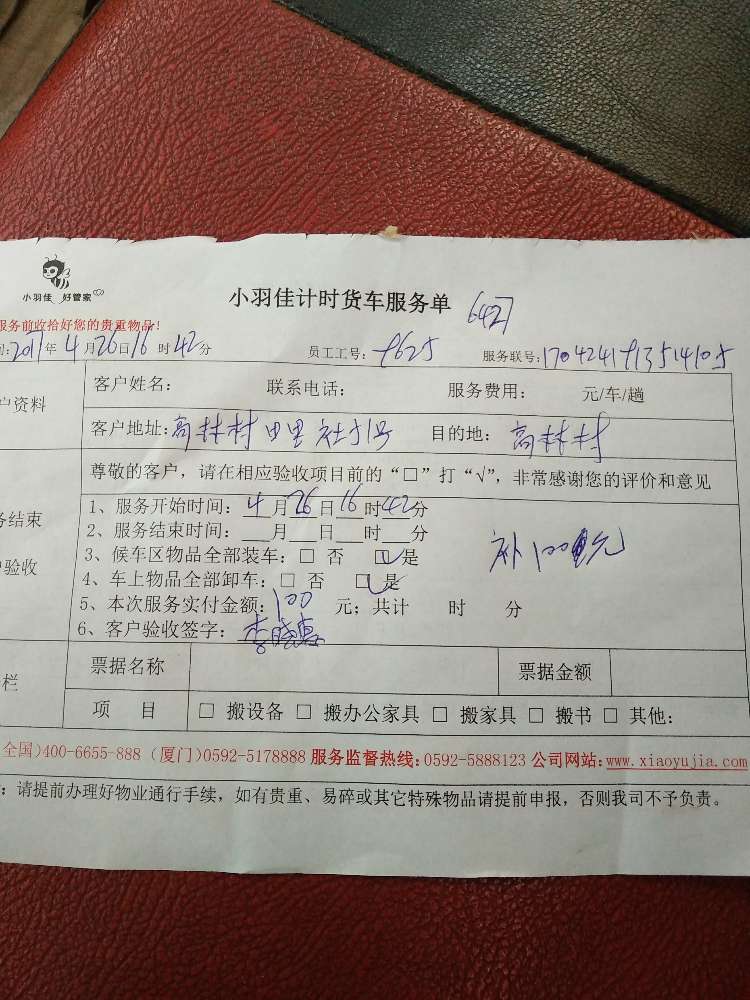 小羽佳 好管家
小羽佳计时货车服务单 6427
服务前收拾好您的贵重物品!
间:2017年4月26日16时42分 员工工号: 9625 服务联号:
户资料 客户姓名: 联系电话: 服务费用: 元/车/趟
客户地址:高林村田里社 号 目的地: 高林村
尊敬的客户，请在相应验收项目前的“□”打“√”，非常感谢您的评价和意见
1、服务开始时间: 4月26日16时42分
务结束 2、服务结束时间: ___月___日___时___分
补100元
户验收 3、候车区物品全部装车: □ 否 ☑是
4、车上物品全部卸车: □ 否 ☑是
5、本次服务实付金额: 100 元; 共计 时 分
6、客户验收签字: 李晓惠
栏 票据名称 票据金额
项 目 □ 搬设备 □ 搬办公家具 □ 搬家具 □ 搬书 □ 其他:
全国)400-6655-888 (厦门)0592-5178888 服务监督热线: 0592-5888123 公司网站: www.xiaoyujia.com
: 请提前办理好物业通行手续，如有贵重、易碎或其它特殊物品请提前申报，否则我司不予负责。